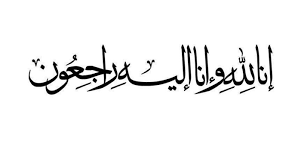 إنا لِلهِ وِإنا إليهِ رِاجِعُون